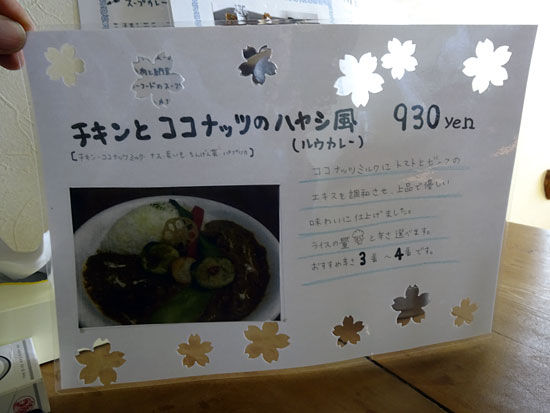 スープカレー
チキンと ココナッツの ハヤシ風 930 yen
(ルウカレー)
[チキン・ココナッツミルク ナス 長いも ちんげん菜 パプリカ]
ココナッツミルクに トマトとビーフの
エキスを調和させ、上品で優しい
味わいに仕上げました。
ライスの量 と辛さ選べます。
おすすめ辛さ 3番 〜 4番です。